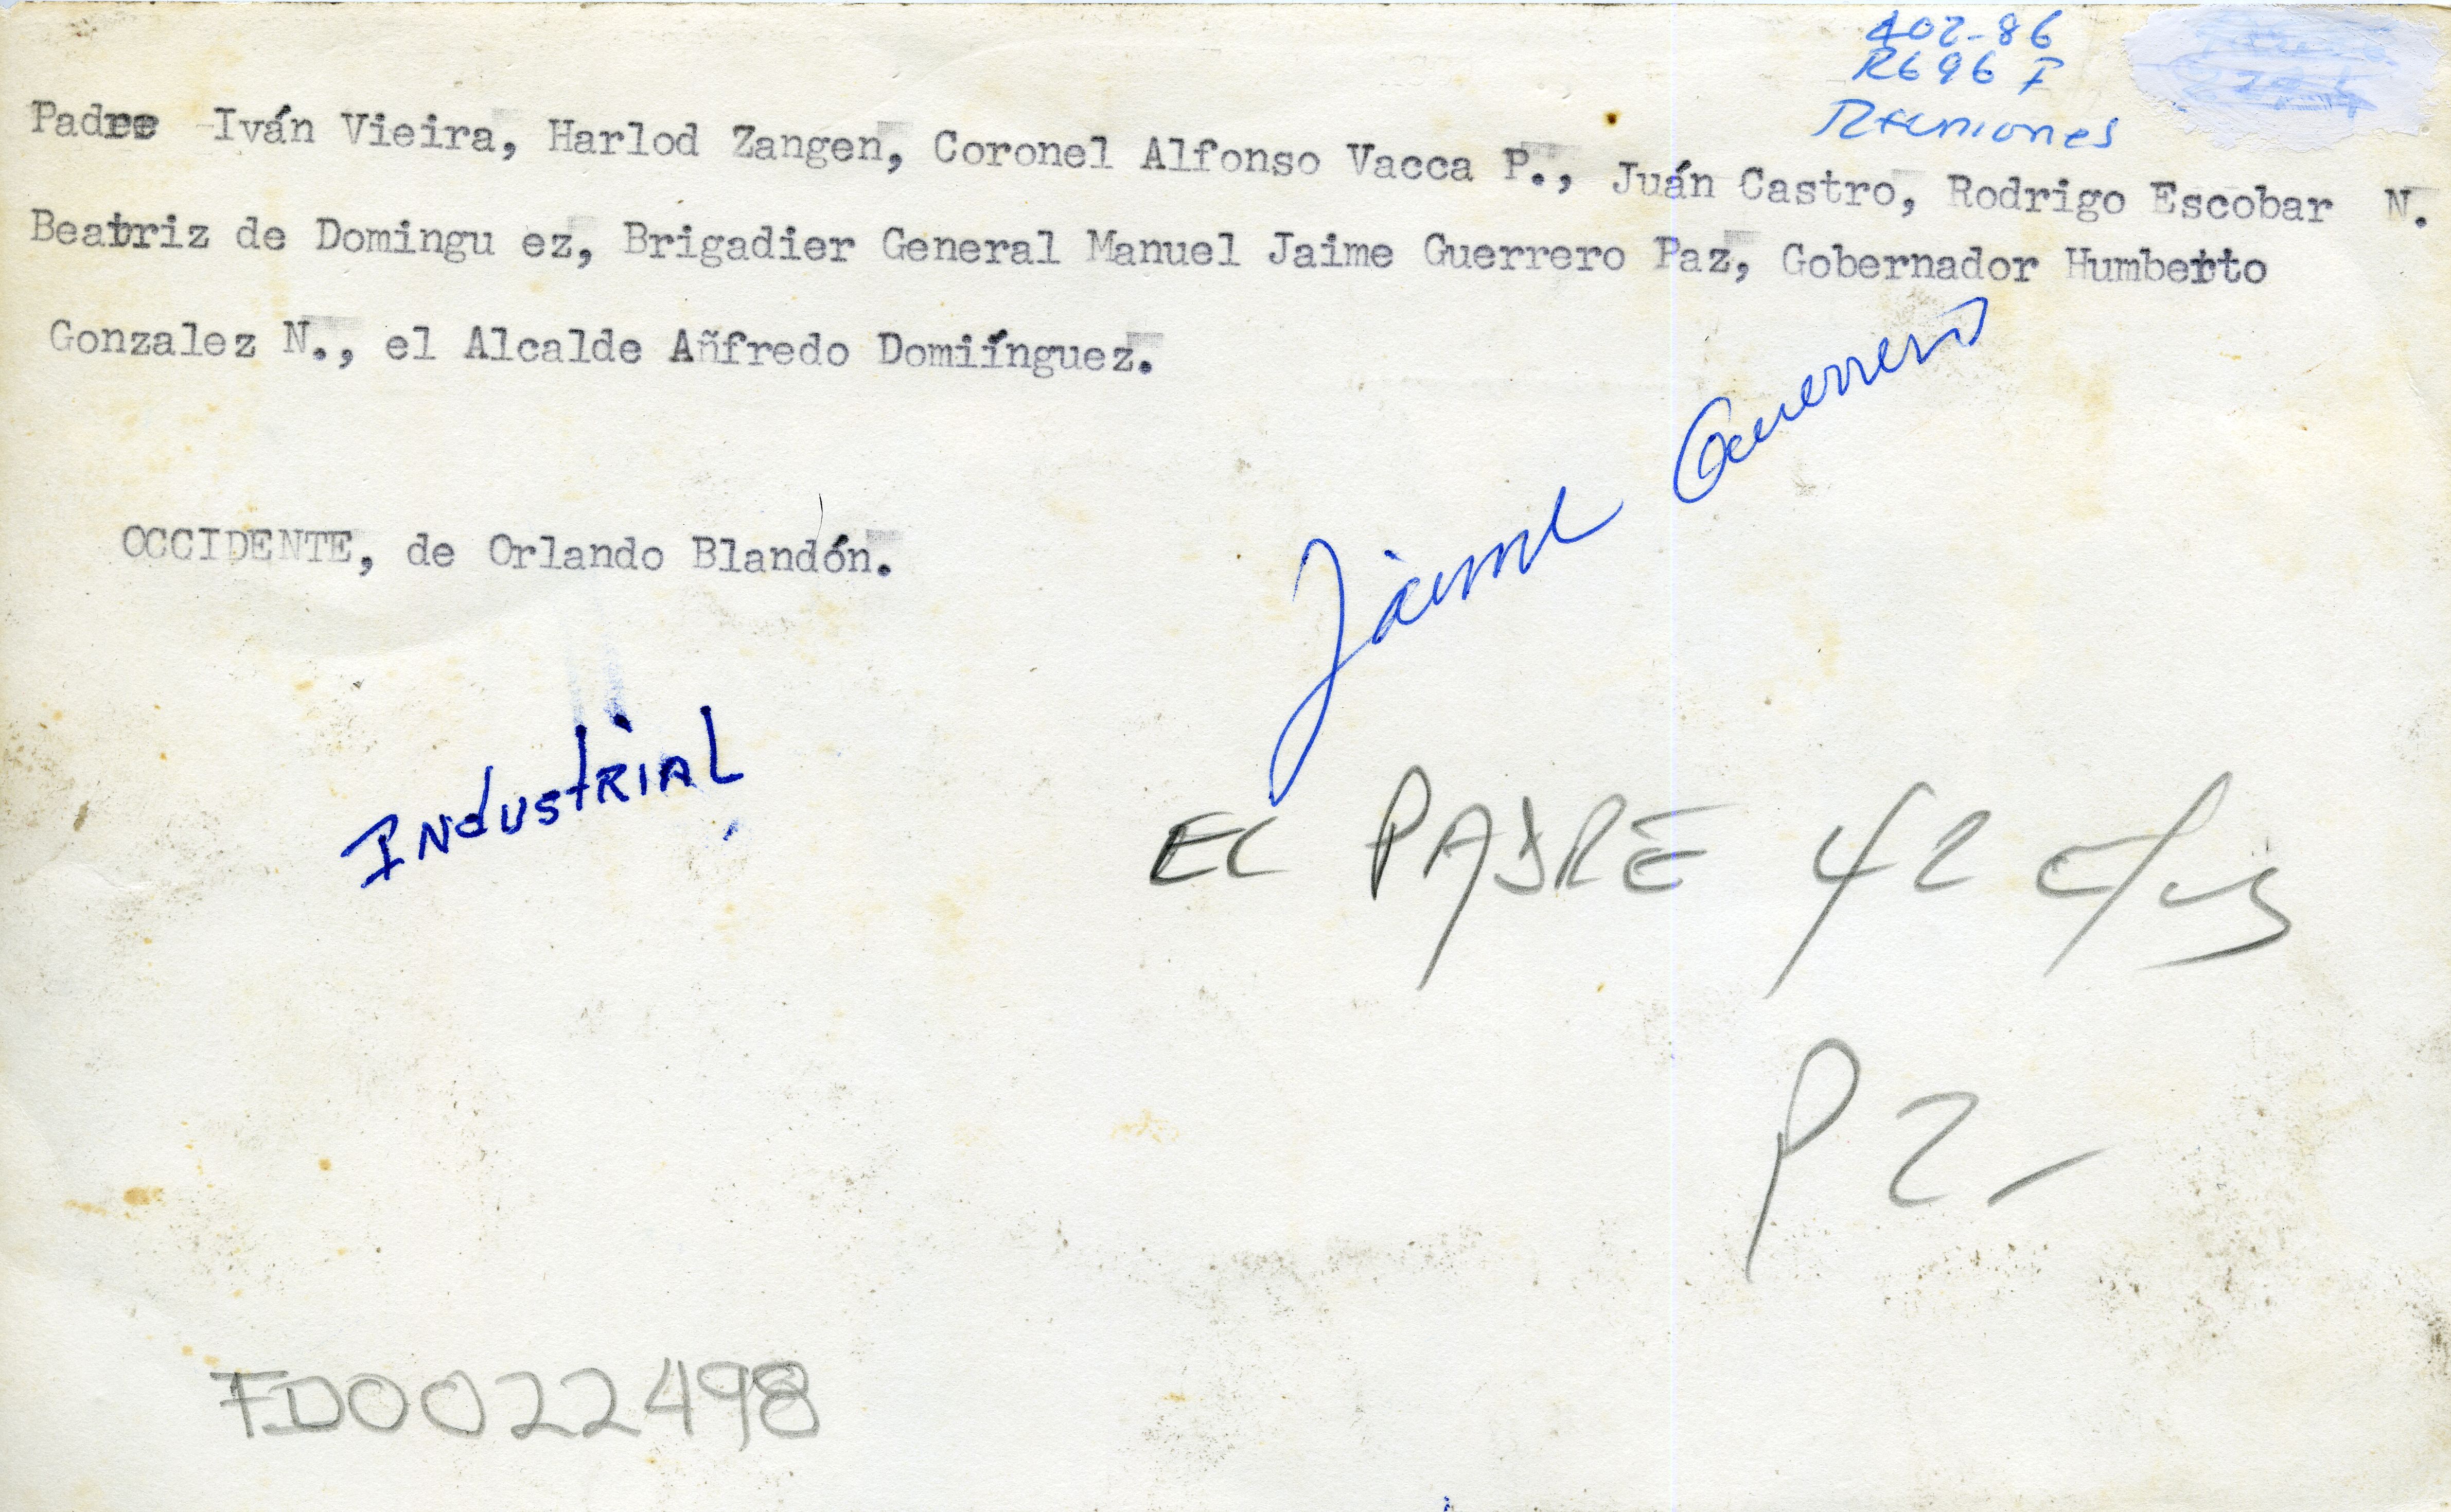 402-86
R696 F
Reuniones
Padre Iván Vieira, Harlod Zangen, Coronel Alfonso Vacca P., Juán Castro, Rodrigo Escobar N.
Beatriz de Domingu ez, Brigadier General Manuel Jaime Guerrero Paz, Gobernador Humberto
Gonzalez N., el Alcalde Añfredo Domiínguez.
OCCIDENTE, de Orlando Blandón.
Jaime Guerrero
Industrial
EL PADRE 42
P 2-
FD0022498